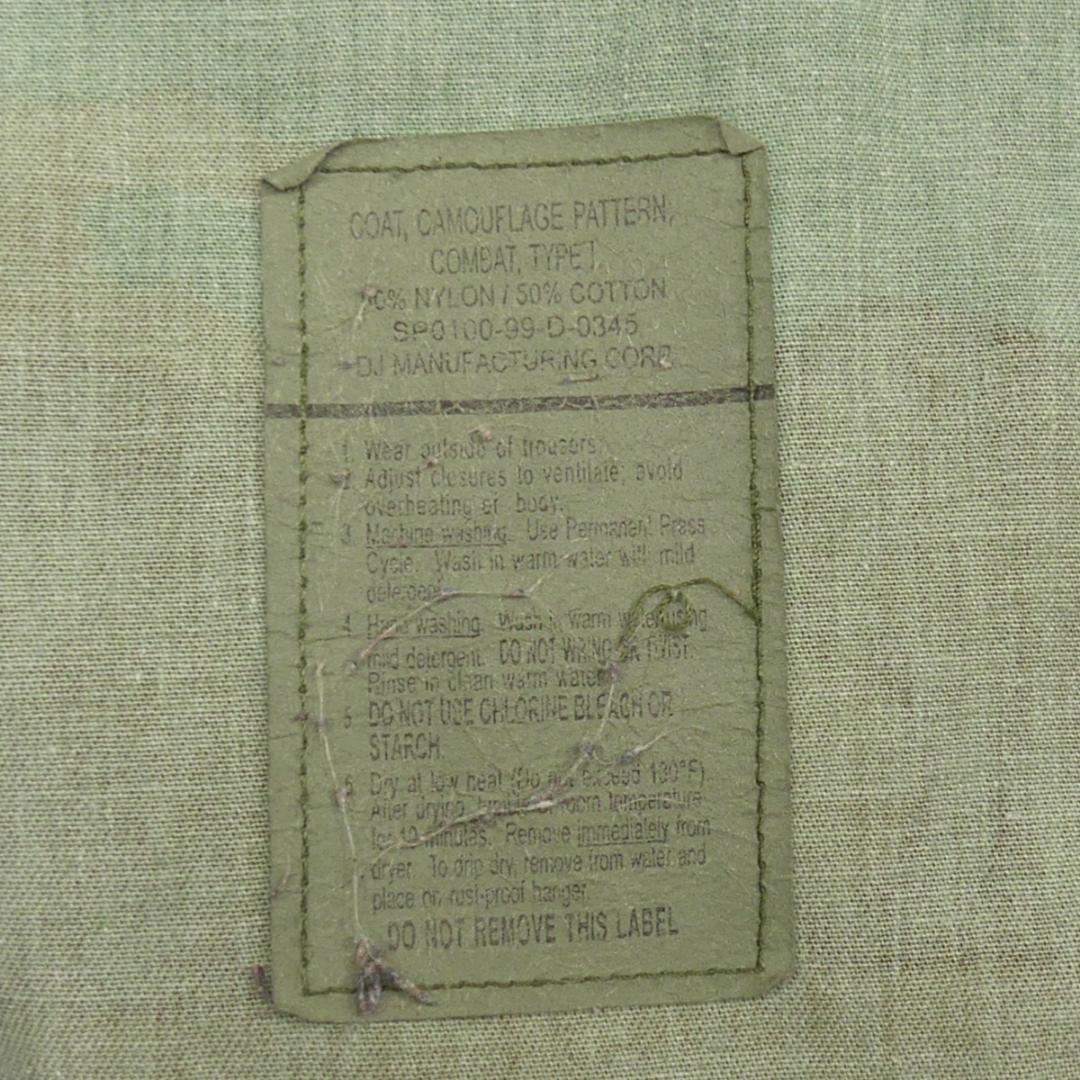 COAT, CAMOUFLAGE PATTERN,
COMBAT, TYPE I
50% NYLON / 50% COTTON
SP0100-99-D-0345
DJ MANUFACTURING CORP.
1. Wear outside of trousers.
2. Adjust closures to ventilate; avoid
overheating of body.
3. Machine washing. Use Permanent Press
Cycle. Wash in warm water with mild
detergent.
4. Hand washing. Wash in warm water using
mild detergent. DO NOT WRING OR TWIST.
Rinse in clean warm water.
5. DO NOT USE CHLORINE BLEACH OR
STARCH.
6. Dry at low heat (Do not exceed 130°F).
After drying, room temperature
for 10 minutes. Remove immediately from
dryer. To drip dry, remove from water and
place on rust-proof hanger.
DO NOT REMOVE THIS LABEL